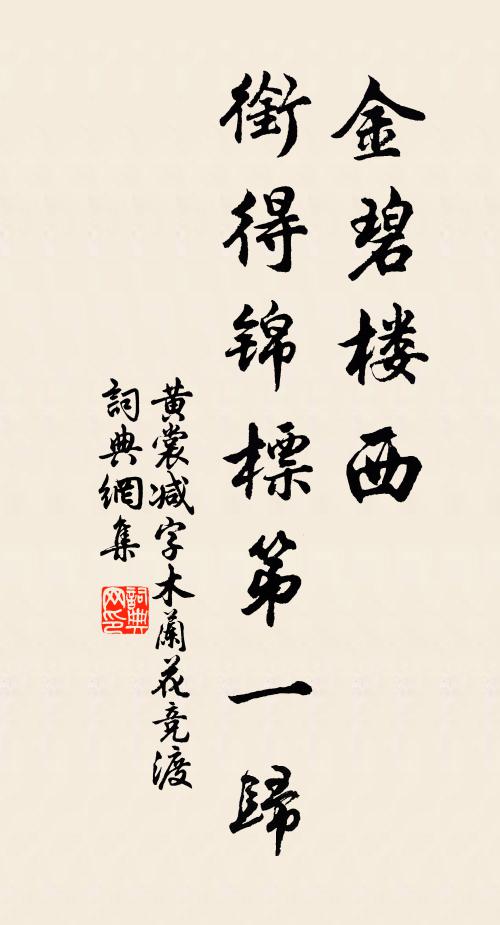 金碧楼西
銜得锦標第一歸
黄裳减字木蘭花競渡
詞典網集
詞典网印